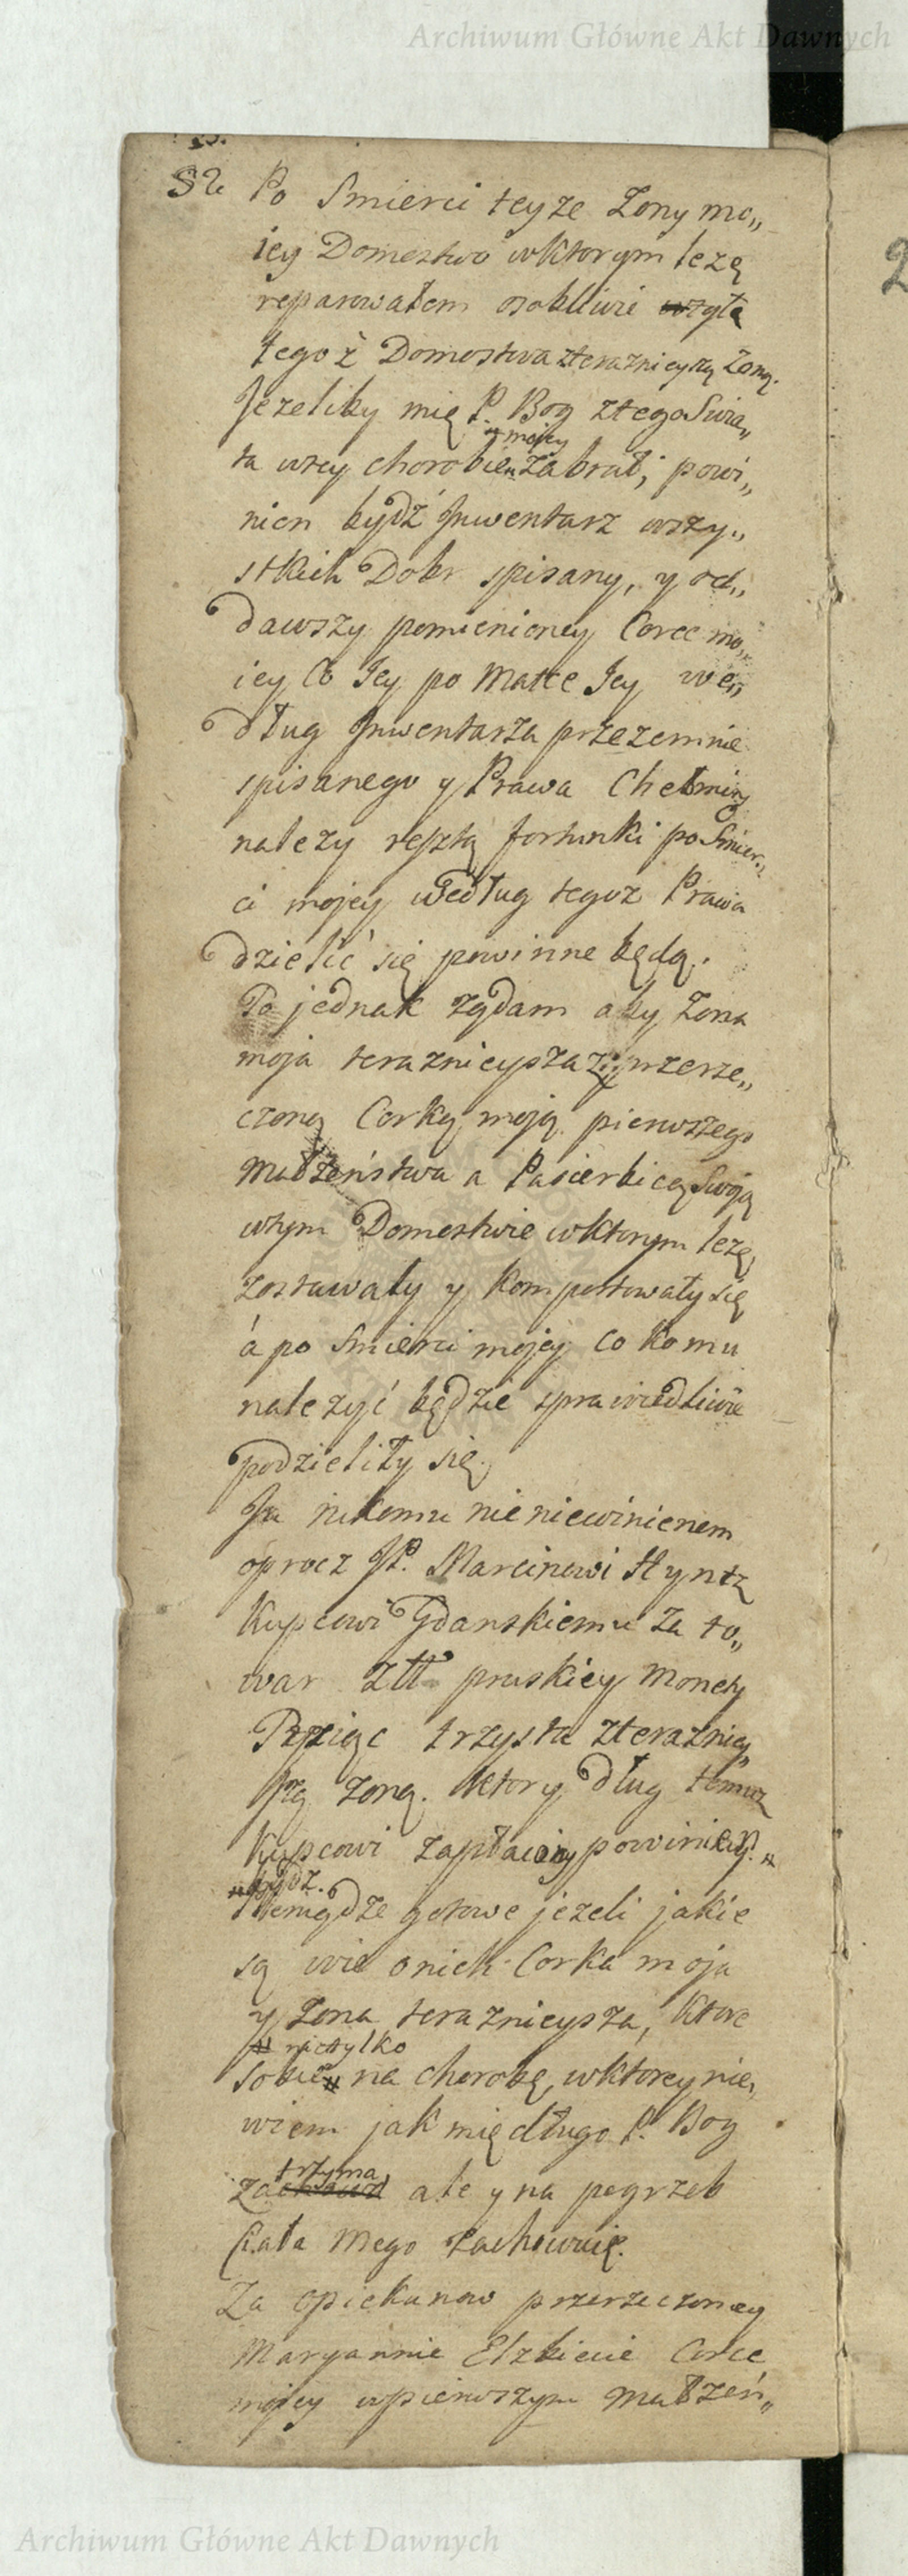 Archiwum Główne Akt Dawnych
82 Po Smierci teyze Zony mo„
iey Domostwo wktorym lezę
reparowałem osobliwie wzgłę
tegoż Domostwa zteraznieyszą Zoną.
Jezeliby mię P. Bog ztego Swia„
# mojey
ta wtey chorobie # zabrał, powi„
nien bydź Jnwentarz wszy„
stkich Dobr spisany, y od„
dawszy pomienioney Corce mo„
iey Co Jey po Matce Jey we„
dług Jnwentarza przezemnie
spisanego y Prawa Chełmiń
nalezy resztą fortunki po Smier„
ci mojey według tegoz Prawa
dzielić się powinne będą.
To jednak ządam aby Zona
moja teraznieysza z przerze„
czoną Corką moją pierwszego
Małżeństwa a Pasierbicą Swoją
wtym Domostwie wktorym lezę,
zostawały y komportowały się
á po Smierci mojey co komu
nalezyć będzie sprawiedliwie
podzieliły się.
Ja nikomu nie niewinienem
oprocz JP. Marcinowi Hyntz
Kupcowi Gdanskiemu za to„
war Złł pruskiey Monety
trzysta zteraźniey„
szą Zoną. Ktory dług temuz
Kupcowi zapłacony powinien #
# bydz.
Pieniądze gotowe jezeli jakie
są wie onich Corka moja
y Zona teraznieysza, ktore
# nietylko
sobie # na chorobę, wktorey nie„
wiem jak mię długo P. Bog
trzyma
zachowa ale y na pogrzeb
Ciała Mego zachowuię.
Za Opiekunow przerzeczoney
Maryannie Elzbiecie Corce
mojey wpierwszym Małżeń„
Archiwum Główne Akt Dawnych